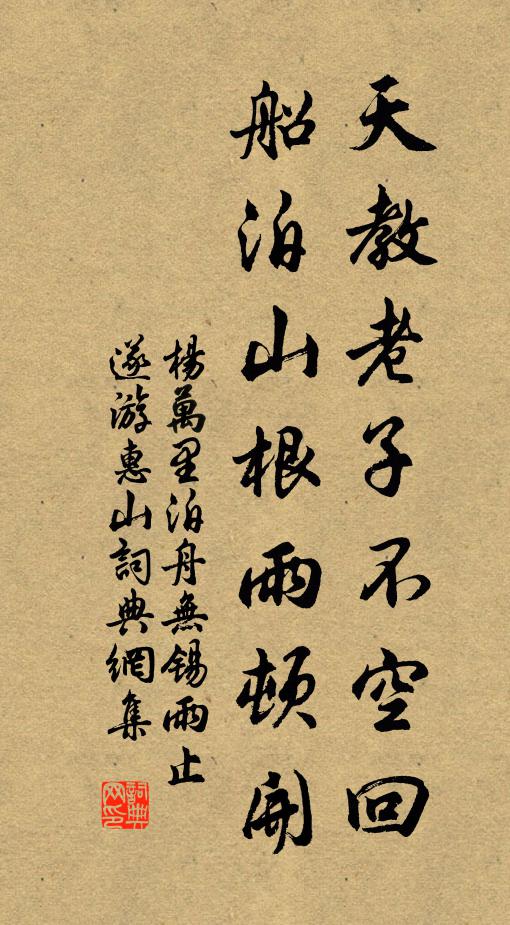 天教老子不空回
船泊山根雨頓開
楊萬里泊舟無錫雨止
遂游惠山詞典網集
詞典
网印